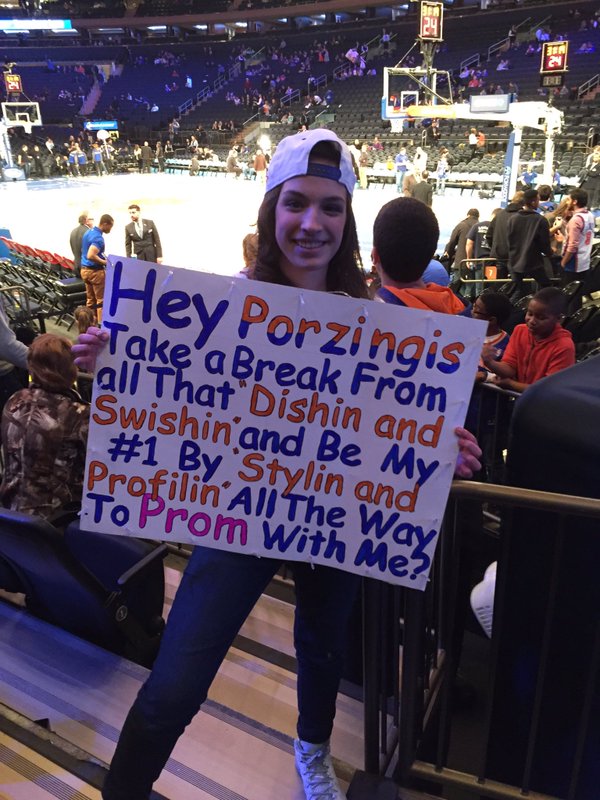 Hey Porzingis
Take a Break From
all That "Dishin and
Swishin' and Be My
#1 By "Stylin and
Profilin' All The Way
To Prom With Me?
24
24